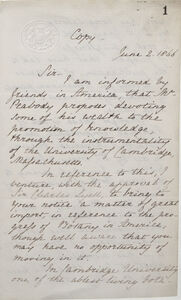 1
Copy
June 2 1866
Sir
I am informed by
friends in America, that Mr
Peabody proposes devoting
some of his wealth to the
promotion of Knowledge,
through the instrumentality
of the University of Cambridge
Massachusetts.
In reference to this, I
venture with the approval of
Sir Charles Lyell to bring to
your notice a matter of great
import in reference to the pro-
gress of Botany in America,
though well aware that you
may have no opportunity of
moving in it.
In Cambridge University
one of the ablest living bota